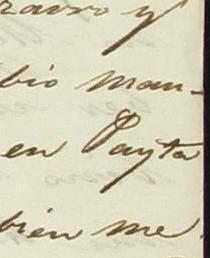 ravo y
bio man-
en Payta
bien me